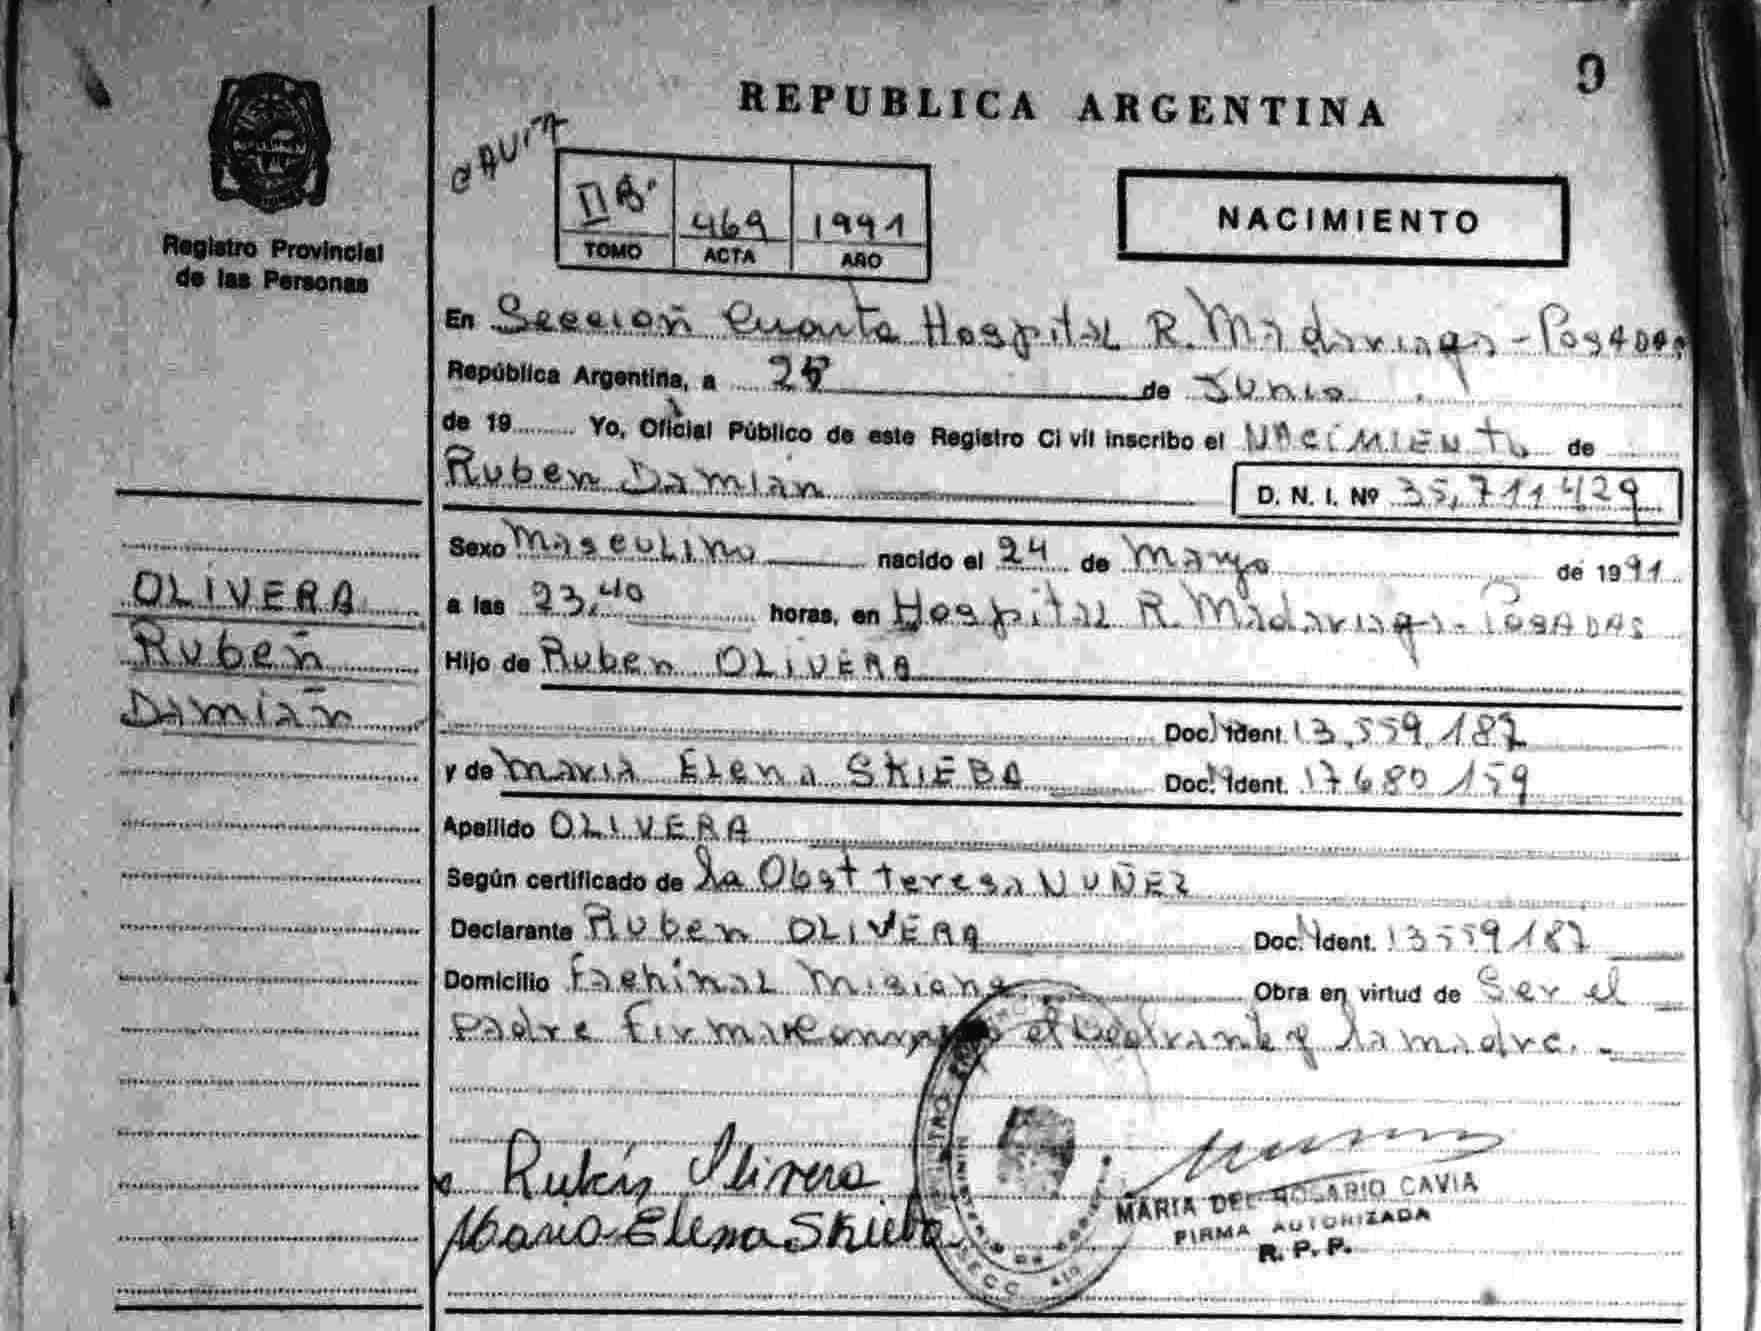 REPUBLICA ARGENTINA
9
Registro Provincial
de las Personas
GAVITA
II B. 469 1991
TOMO ACTA AÑO
NACIMIENTO
En Sección Cuarta Hospital R. Madariaga - Posadas
República Argentina, a 25 de Junio
de 19 Yo, Oficial Público de este Registro Civil inscribo el NACIMIENTO de
Ruben Damian D. N. I. Nº 35,711 429
Sexo Masculino nacido el 24 de Mayo de 1991
a las 23,40 horas, en Hospital R. Madariaga - POSADAS
Hijo de Ruben OLIVERA
Doc. Ident. 13,559,187
y de Maria Elena SKIEBA Doc. Ident. 17 680 159
Apellido OLIVERA
Según certificado de la Obst Teresa NUÑEZ
Declarante Ruben OLIVERA Doc. Ident. 13559187
Domicilio Fachinal Misiones Obra en virtud de Ser el
Padre Firma el y la madre.
OLIVERA
Ruben
Damián
Rubén Olivera
Maria Elena Skieba
MARIA DEL ROSARIO CAVIA
FIRMA AUTORIZADA
R. P. P.